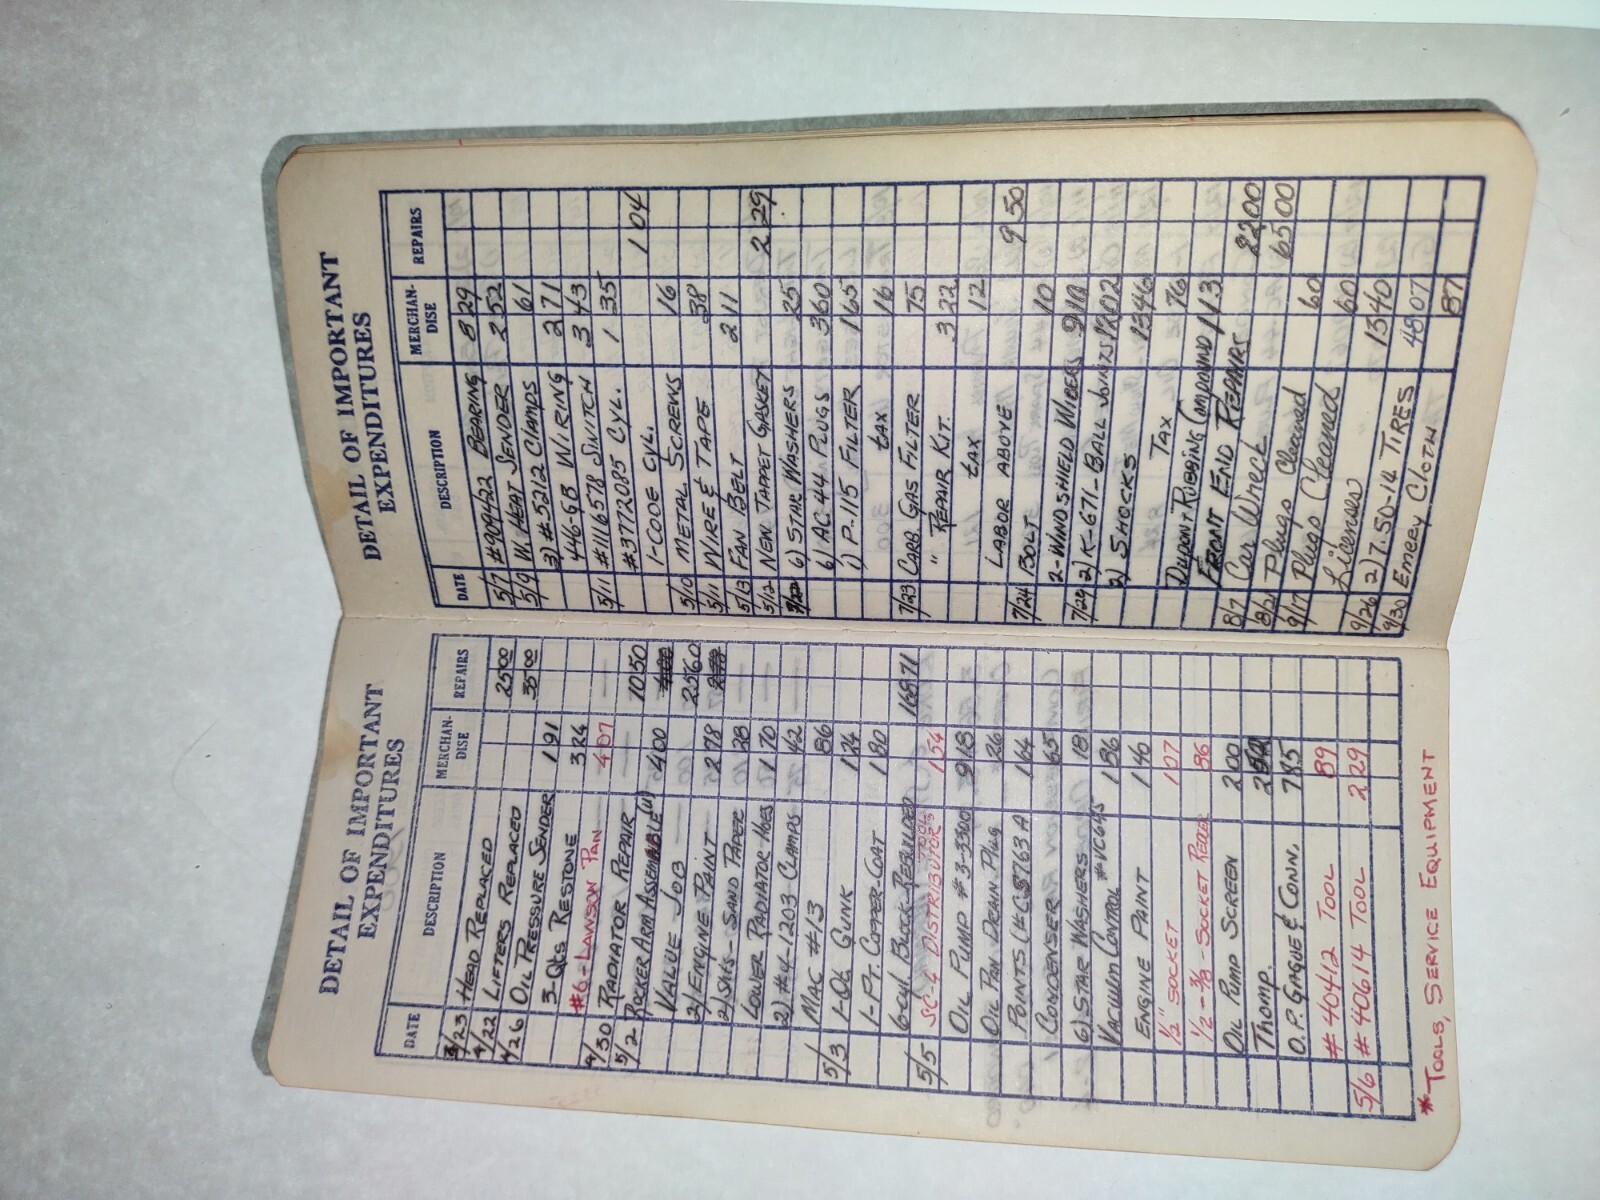 DETAIL OF IMPORTANT
EXPENDITURES
DATE DESCRIPTION MERCHAN-DISE REPAIRS
3/23 HEAD REPLACED 25 00
4/22 LIFTERS REPLACED 35 00
4/26 OIL PRESSURE SENDER 1 91
3-Qts RESTONE 3 24
#6-LAWSON PAN 4 07 —
4/30 RADIATOR REPAIR — 10 50
5/2 ROCKER ARM ASSEMABLE (U) 4 00
VALUE JOB — 25 60
2) ENGINE PAINT 2 78
2) Shts-SAND PAPER 28 —
LOWER RADIATOR HOES 1 70 —
2) #4-1203 CLAMPS 42 —
MAC #13 86
5/3 1-Qt GUNK 1 24
1-PT. COPPER-COAT 1 80
6 cyl BLOCK-REBUILDED 168 71
5/5 SC-4 DISTRIBUTOR TOOL 1 54
OIL PUMP #3-3300 9 18
OIL PAN DRAIN PLUG 26
POINTS (#CS763A 1 64
CONDENSER 65
6) STAR WASHERS 18
VACUUM CONTROL #VC645 1 86
ENGINE PAINT 1 46
1/2" SOCKET 1 07
1/2 - 3/8 - SOCKET 86
OIL PUMP SCREEN 2 00
THOMP.
O.P. GAGUE & CONN. 7 85
#40412 TOOL 89
5/6 #40614 TOOL 2 29
*TOOLS, SERVICE EQUIPMENT
DETAIL OF IMPORTANT
EXPENDITURES
DATE DESCRIPTION MERCHAN-DISE REPAIRS
5/7 #909422 BEARING 8 29
5/9 W. HEAT SENDER 2 52
3) #5212 CLAMPS 61
446-GB WIRING 2 71
5/11 #1116578 SWITCH 3 43
#3772085 CYL. 1 35
1-CODE CYL. 1 04
5/10 METAL SCREWS 16
5/11 WIRE & TAPE 38
5/13 FAN BELT 2 11
5/12 NEW TAPPET GASKET 2 29
6) STAR WASHERS 25
6) AC-44 PLUGS 3 60
1) P-115 FILTER 1 65
tax 16
7/23 CARB GAS FILTER 75
" REPAIR KIT. 3 22
tax 12
LABOR ABOVE 9 50
7/24 BOLT 10
2-WINDSHIELD WIPERS
7/29 2) K-671-BALL JOINTS 12 02
2) SHOCKS 13 46
TAX 76
DUPONT RUBBING COMPOUND 1 13
FRONT END REPAIRS 22 00
8/7 Car Wreck 65 00
8/21 Plugs Cleaned 60
9/17 Plugs Cleand 60
Licenses 13 40
9/26 2) 7.50-14 TIRES 48 07
9/30 EMEEY CLOTH 87